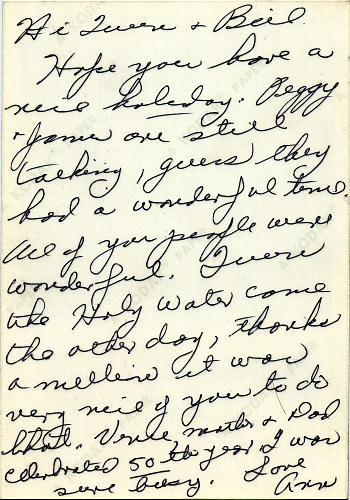 Hi Inere + Bill.
Hope you have a
nice holiday. Peggy
+ Jamie are still
talking, guess they
had a wonderful time.
All of you people were
wonderful. Inere
the Holy Water come
the other day, thanks
a million it was
very nice of you to do
that. Verne, mother + Dad
celebrated 50th year I was
sure busy. Love
Ann